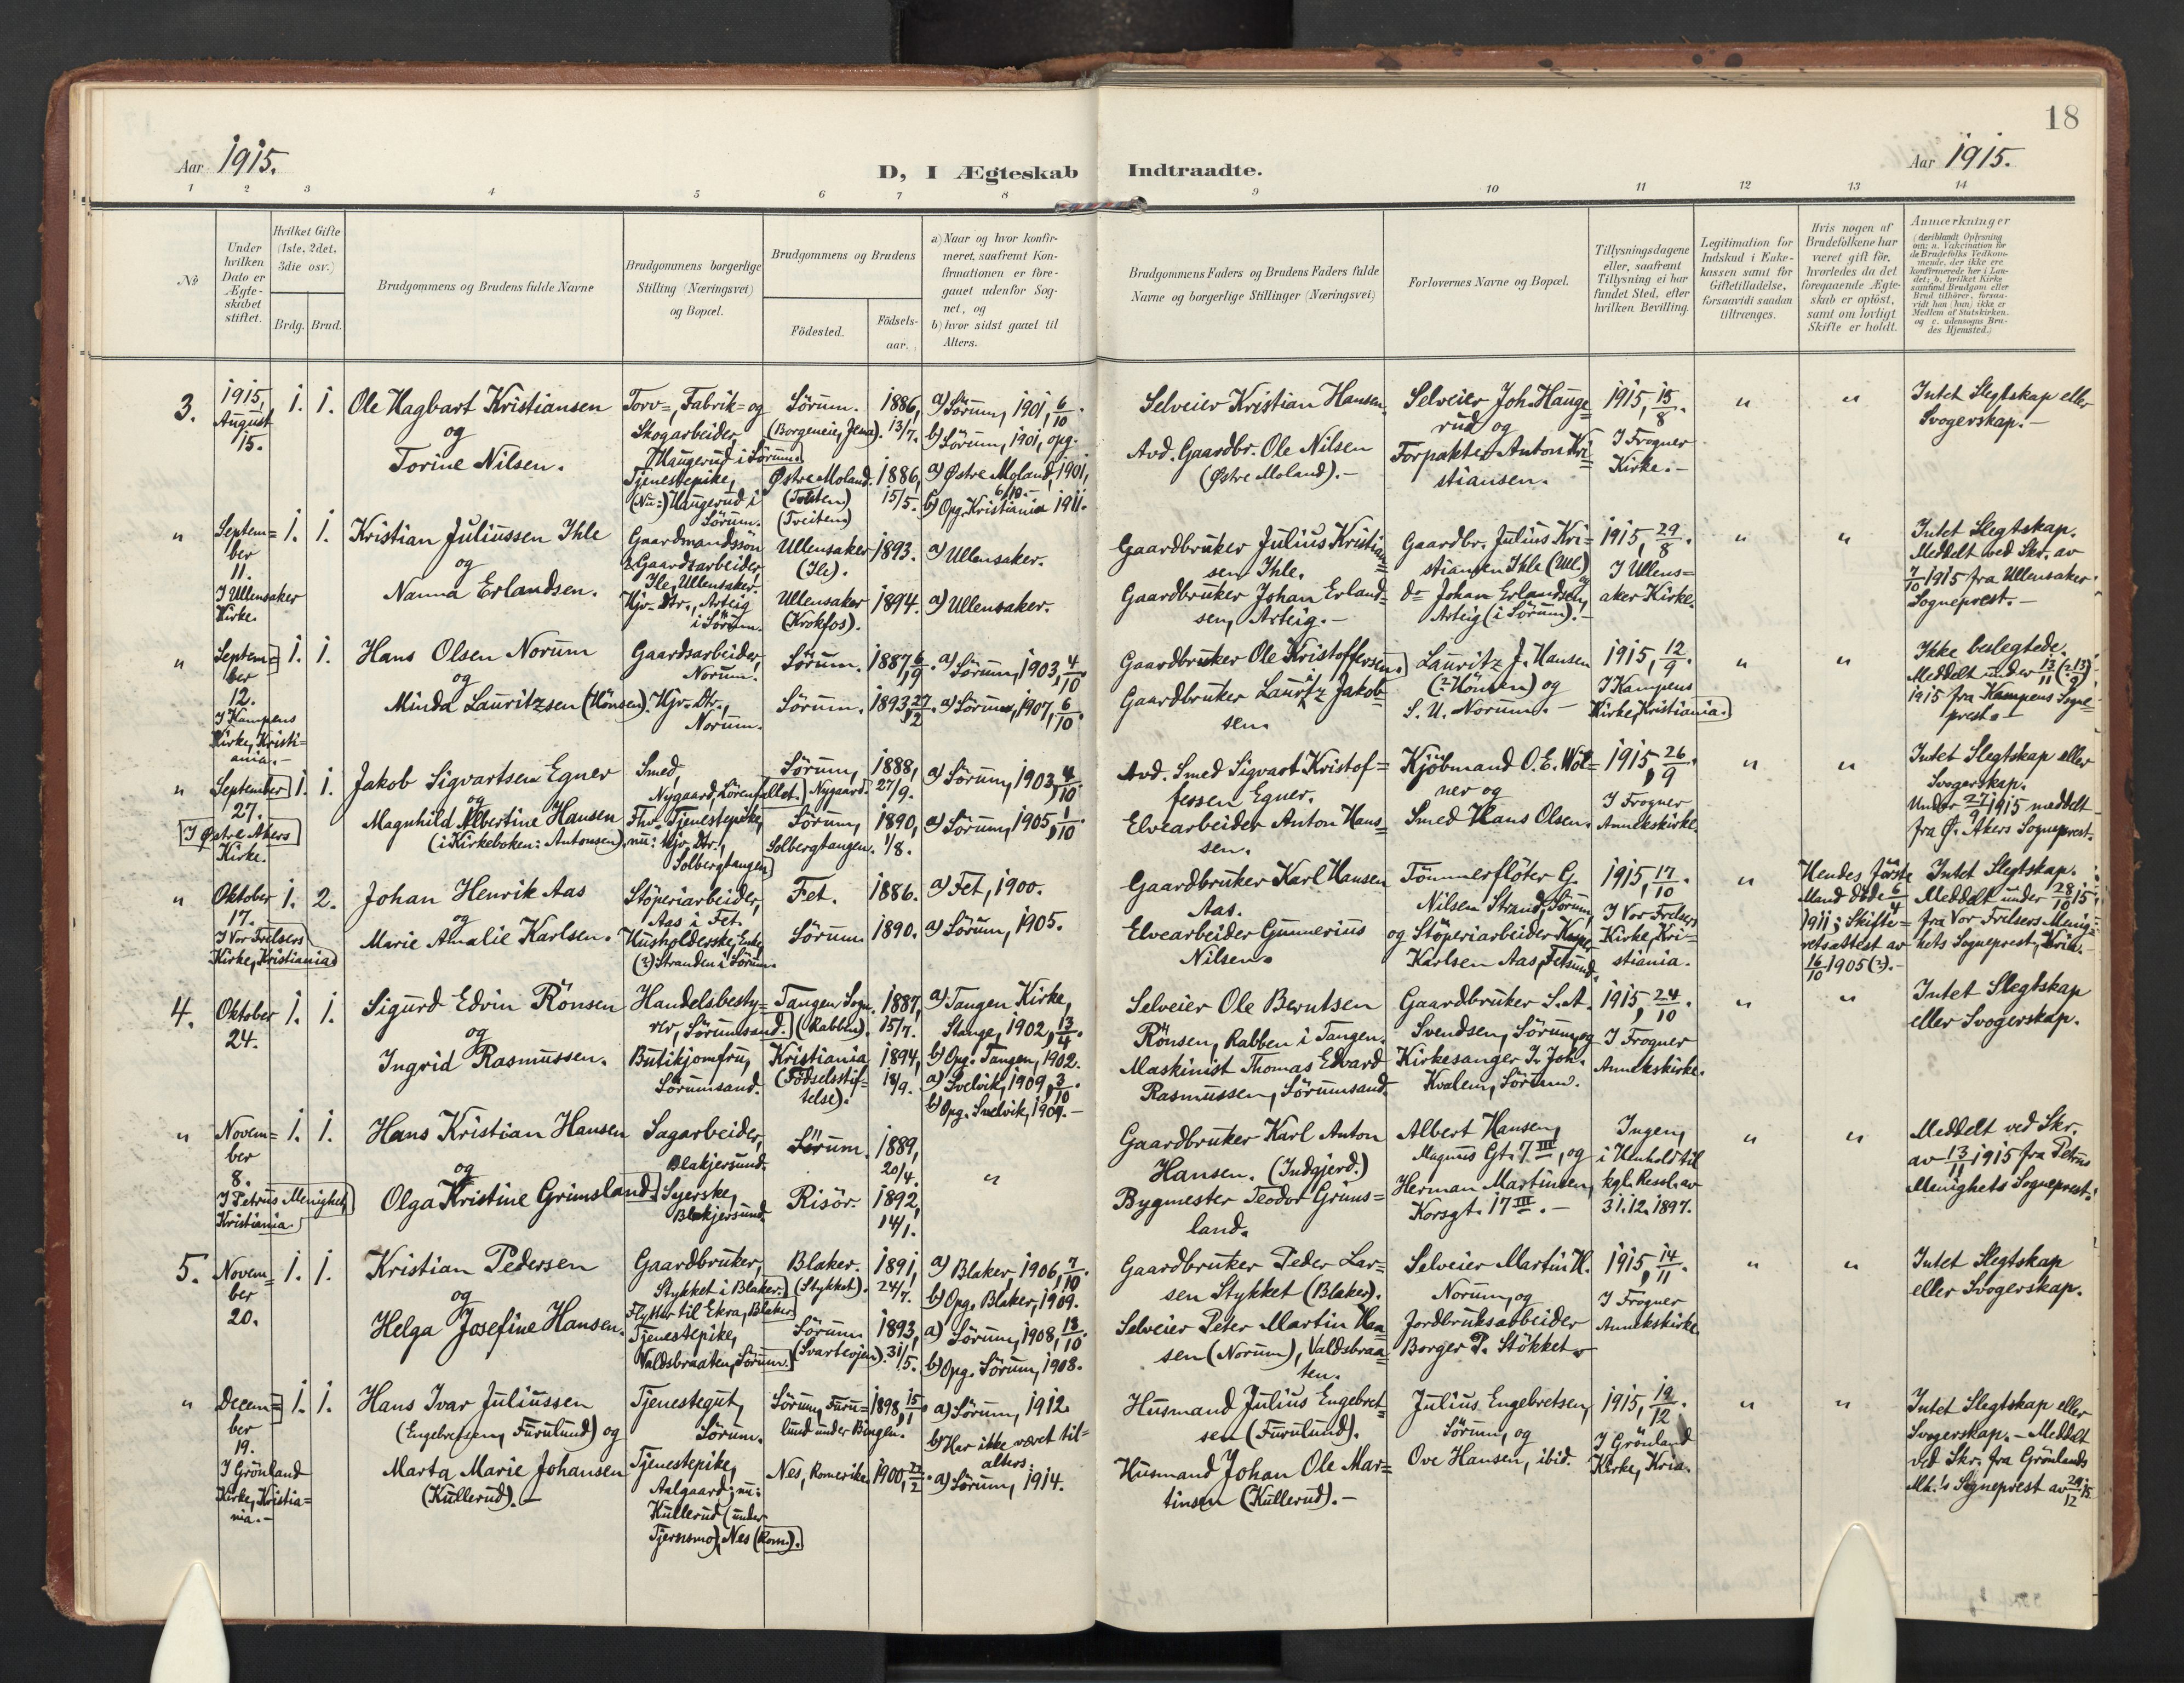 18
Aar 1915.
D, I Ægteskab Indtraadte.
Aar 1915.
1 2 3 4 5 6 7 8 9 10 11 12 13 14
No
Under hvilken Dato er Ægteskabet stiftet.
Hvilket Gifte (1ste, 2det, 3die osv.)
Brdg. Brud.
Brudgommens og Brudens fulde Navne
Brudgommens borgerlige Stilling (Næringsvei) og Bopæl.
Brudgommens og Brudens
Födested.
Födsels-aar.
a) Naar og hvor konfir-
meret, saafremt Kon-
firmationen er fore-
gaaet udenfor Sog-
net, og
b) hvor sidst gaaet til
Alters.
Brudgommens Faders og Brudens Faders fulde
Navne og borgerlige Stillinger (Næringsvei)
Forlovernes Navne og Bopæl.
Tillysningsdagene
eller, saafremt
Tillysning ei har
fundet Sted, efter
hvilken Bevilling.
Legitimation for
Indskud i Enke-
kassen samt for
Giftetilladelse,
forsaavidt saadan
tiltrænges.
Hvis nogen af
Brudefolkene har
været gift för,
hvorledes da det
foregaaende Ægte-
skab er oplöst,
samt om lovligt
Skifte er holdt.
Anmærkninger
(deriblandt Oplysning
om: a. Vakcination for
de Brudefolks Vedkom-
mende, der ikke ere
konfirmerede her i Lan-
det; b. hvilket Kirke-
samfund Brudgom eller
Brud tilhörer, forsaa-
vidt han (hun) ikke er
Medlem af Statskirken.
og c. udensogns Bru-
des Hjemsted.)
3.
1915,
August
15.
1. 1.
Ole Hagbart Kristiansen
og
Torine Nilsen.
Torv=, Fabrik= og
Skogarbeider,
Haugerud i Sörum.
Tjenestepike,
(Nu:) Haugerud i
Sörum.
Sörum.
(Borgeneie, Jena).
Østre Moland.
(Treiten)
1886,
13/7.
1886,
15/5.
a) Sörum, 1901, 6/10.
b) Sörum, 1901, opg.
a) Østre Moland, 1901,
6/10.-
b) Opg. Kristiania 1911.
Selveier Kristian Hansen.
Avd. Gaardbr. Ole Nilsen
(Østre Moland).-
Selveier Joh. Hauge=
rud og
Forpakter Anton Kri=
stiansen.
1915, 15/8.
I Frogner
Kirke.-
"
"
Intet Slegtskap eller
Svogerskap.-
"
Septem=
ber
11.
I Ullensaker
Kirke.
1. 1.
Kristian Juliussen Ihle
og
Nanna Erlandsen.
Gaardmandssön
& Gaardsarbeider,
Ile, Ullensaker.
Hjv. Dtr., Arteig
i Sörum.
Ullensaker
(Ile).
Ullensaker
(Krokfos).
1893.
1894.
a) Ullensaker.
a) Ullensaker.
Gaardbruker Julius Kristian=
sen Ihle.
Gaardbruker Johan Erland=
sen, Arteig.-
Gaardbr. Julius Kri=
stiansen Ihle (Ull.)
og
do Johan Erlandsen,
Arteig (i Sörum).-
1915, 29/8.
I Ullens=
aker Kirke.
"
"
Intet Slegtskap.
Meddelt ved Skr. av
7/10 1915 fra Ullensaker
Sogneprest.-
"
Septem=
ber
12.
I Kampens
Kirke, Kristi=
ania.-
1. 1.
Hans Olsen Norum
og
Minda Lauritzsen (Hönsen).
Gaardsarbeider,
Norum.
Hjv. Dtr.,
Norum.
Sörum.
Sörum.
1887, 6/9.
1893, 27/2.
a) Sörum, 1903, 4/10
a) Sörum, 1907, 6/10.
Gaardbruker Ole Kristoffersen.
Gaardbruker Lauritz Jakob=
sen
Lauritz J. Hansen
(?: Hönsen) og
S. U. Norum.-
1915, 12/9.
I Kampens
Kirke, Kristiania.
"
"
Ikke beslegtede.
Meddelt under 13/11 (?: 13/9),
1915 fra Kampens Sogne=
prest.-
"
September
27.
I Østre Akers
Kirke.
1. 1.
Jakob Sigvartsen Egner
og
Magnhild Albertine Hansen
(i Kirkeboken: Antonsen).
Smed,
Nygaard, Lörenfallet.
Fhv. Tjenestepike,
nu: Hjv. Dtr.,
Solbergtangen
Sörum,
Nygaard.
Sörum,
Solbergtangen.
1888,
27/9.
1890,
1/8.
a) Sörum, 1903, 4/10.
a) Sörum, 1905, 1/10.
Avd. Smed Sigvart Kristof=
fessen Egner.
Elvearbeider Anton Hans=
sen.
Kjöbmand O. E. Wöl=
ner og
Smed Hans Olsen.
1915, 26/9.
I Frogner
Annekskirke.
"
"
Intet Slegtskap eller
Svogerskap.
Under 27/9 1915 meddelt
fra Ø. Akers Sogneprest.
"
Oktober
17.
I Vor Frelsers
Kirke, Kristiania.
1. 2.
Johan Henrik Aas
og
Marie Amalie Karlsen.
Stöperiarbeider,
Aas i Fet.
Husholderske, Enke,
(?) Stranden i Sörum.
Fet.
Sörum.
1886.
1890.
a) Fet, 1900.
a) Sörum, 1905.
Gaardbruker Karl Hansen
Aas.
Elvearbeider Gunnerius
Nilsen.
Tömmerflöter G.
Nilsen Strand, Sörum,
og Stöperiarbeider
Karlsen Aas, Fetsund.
1915, 17/10.
I Vor Frelsers
Kirke, Kri=
stiania.
"
Hendes förste
Mand döde 6/4
1911; Skifte=
retsattest av
16/10 1905 (?).-
Intet Slegtskap.
Meddelt under 28/10 15,
fra Vor Frelsers Menig=
hets Sogneprest, Kria.-
4.
Oktober
24.
1. 1.
Sigurd Edvin Rönsen
og
Ingrid Rasmussen.
Handelsbesty=
rer, Sörumsand.
Butikjomfru,
Sörumsand.
Tangen Sogn.
(Rabben).
Kristiania
(Födselsstif=
telse).
1887,
15/7.
1894,
18/9.
a) Tangen Kirke,
Stange, 1902, 13/4.
b) Opg. Tangen, 1902.
a) Svelvik, 1909, 3/10.
b) Opg. Svelvik, 1909.-
Selveier Ole Berntsen
Rönsen, Rabben i Tangen.
Maskinist Thomas Edvard
Rasmussen, Sörumsand.
Gaardbruker S. A.
Svendsen, Sörum, og
Kirkesanger I. Joh.
Kvalem, Sörum.
1915, 24/10.
I Frogner
Annekskirke.
"
"
Intet Slegtskap
eller Svogerskap.
"
Novem=
ber
8.
I Petrus Menighet,
Kristiania.
1. 1.
Hans Kristian Hansen
og
Olga Kristine Grimsland.
Sagarbeider,
Blakjersund.
Syerske,
Blakjersund.
Sörum.
Risör.
1889,
20/4.
1892,
14/1.
"
Gaardbruker Karl Anton
Hansen. (Indgjerd.)
Bygmester Teodor Grims=
land.
Albert Hansen,
Magnus Gt. 7 III, og
Herman Martinsen,
Korsgt. 17 III.-
Ingen,
i Henhold til
kgl. Resol. av
31.12.1897.
"
"
Meddelt ved Skr.
av 13/11 1915 fra Petrus
Menighets Sogneprest.
5.
Novem=
ber
20.
1. 1.
Kristian Pedersen
og
Helga Josefine Hansen.
Gaardbruker,
Stykket i Blaker.
Flytter til Ekra, Blaker
Tjenestepike,
Valdsbraaten, Sörum.
Blaker.
(Stykket).
Sörum
(Svartevjen).
1891,
24/7.
1893,
31/5.
a) Blaker, 1906, 7/10.
b) Opg. Blaker, 1909.
a) Sörum, 1908, 18/10.
b) Opg. Sörum, 1908.
Gaardbruker Peder Lar=
sen Stykket (Blaker).
Selveier Peter Martin Han=
sen (Norum), Valdsbraa=
ten.
Selveier Martin H.
Norum, og
Jordbruksarbeider
Borger P. Stökket.
1915, 14/11.
I Frogner
Annekskirke.
"
"
Intet Slegtskap
eller Svogerskap.
"
Decem=
ber
19.
I Grönland
Kirke, Kristia=
nia.-
1. 1.
Hans Ivar Juliussen
(Engebretsen, Furulund) og
Marta Marie Johansen
(Kullerud).-
Tjenestegut,
Sörum.
Tjenestepike,
Aalgaard; nu:
Kullerud (under
Tjernsmo), Nes (Rom.).
Sörum, Furu=
lund under Bingen.
Nes, Romerike
1898, 15/1.
1900, 22/2.
a) Sörum, 1912
b) Har ikke været til=
alters.
a) Sörum, 1914.
Husmand Julius Engebret=
sen (Furulund).
Husmand Johan Ole Mar=
tinsen (Kullerud).-
Julius Engebretsen,
Sörum, og
Ove Hansen, ibid.
1915, 19/12.
I Grönland
Kirke, Kria.
"
"
Intet Slegtskap eller
Svogerskap.- Meddelt
ved Skr. fra Grönlands
Mh.'s Sogneprest av 20/12 15